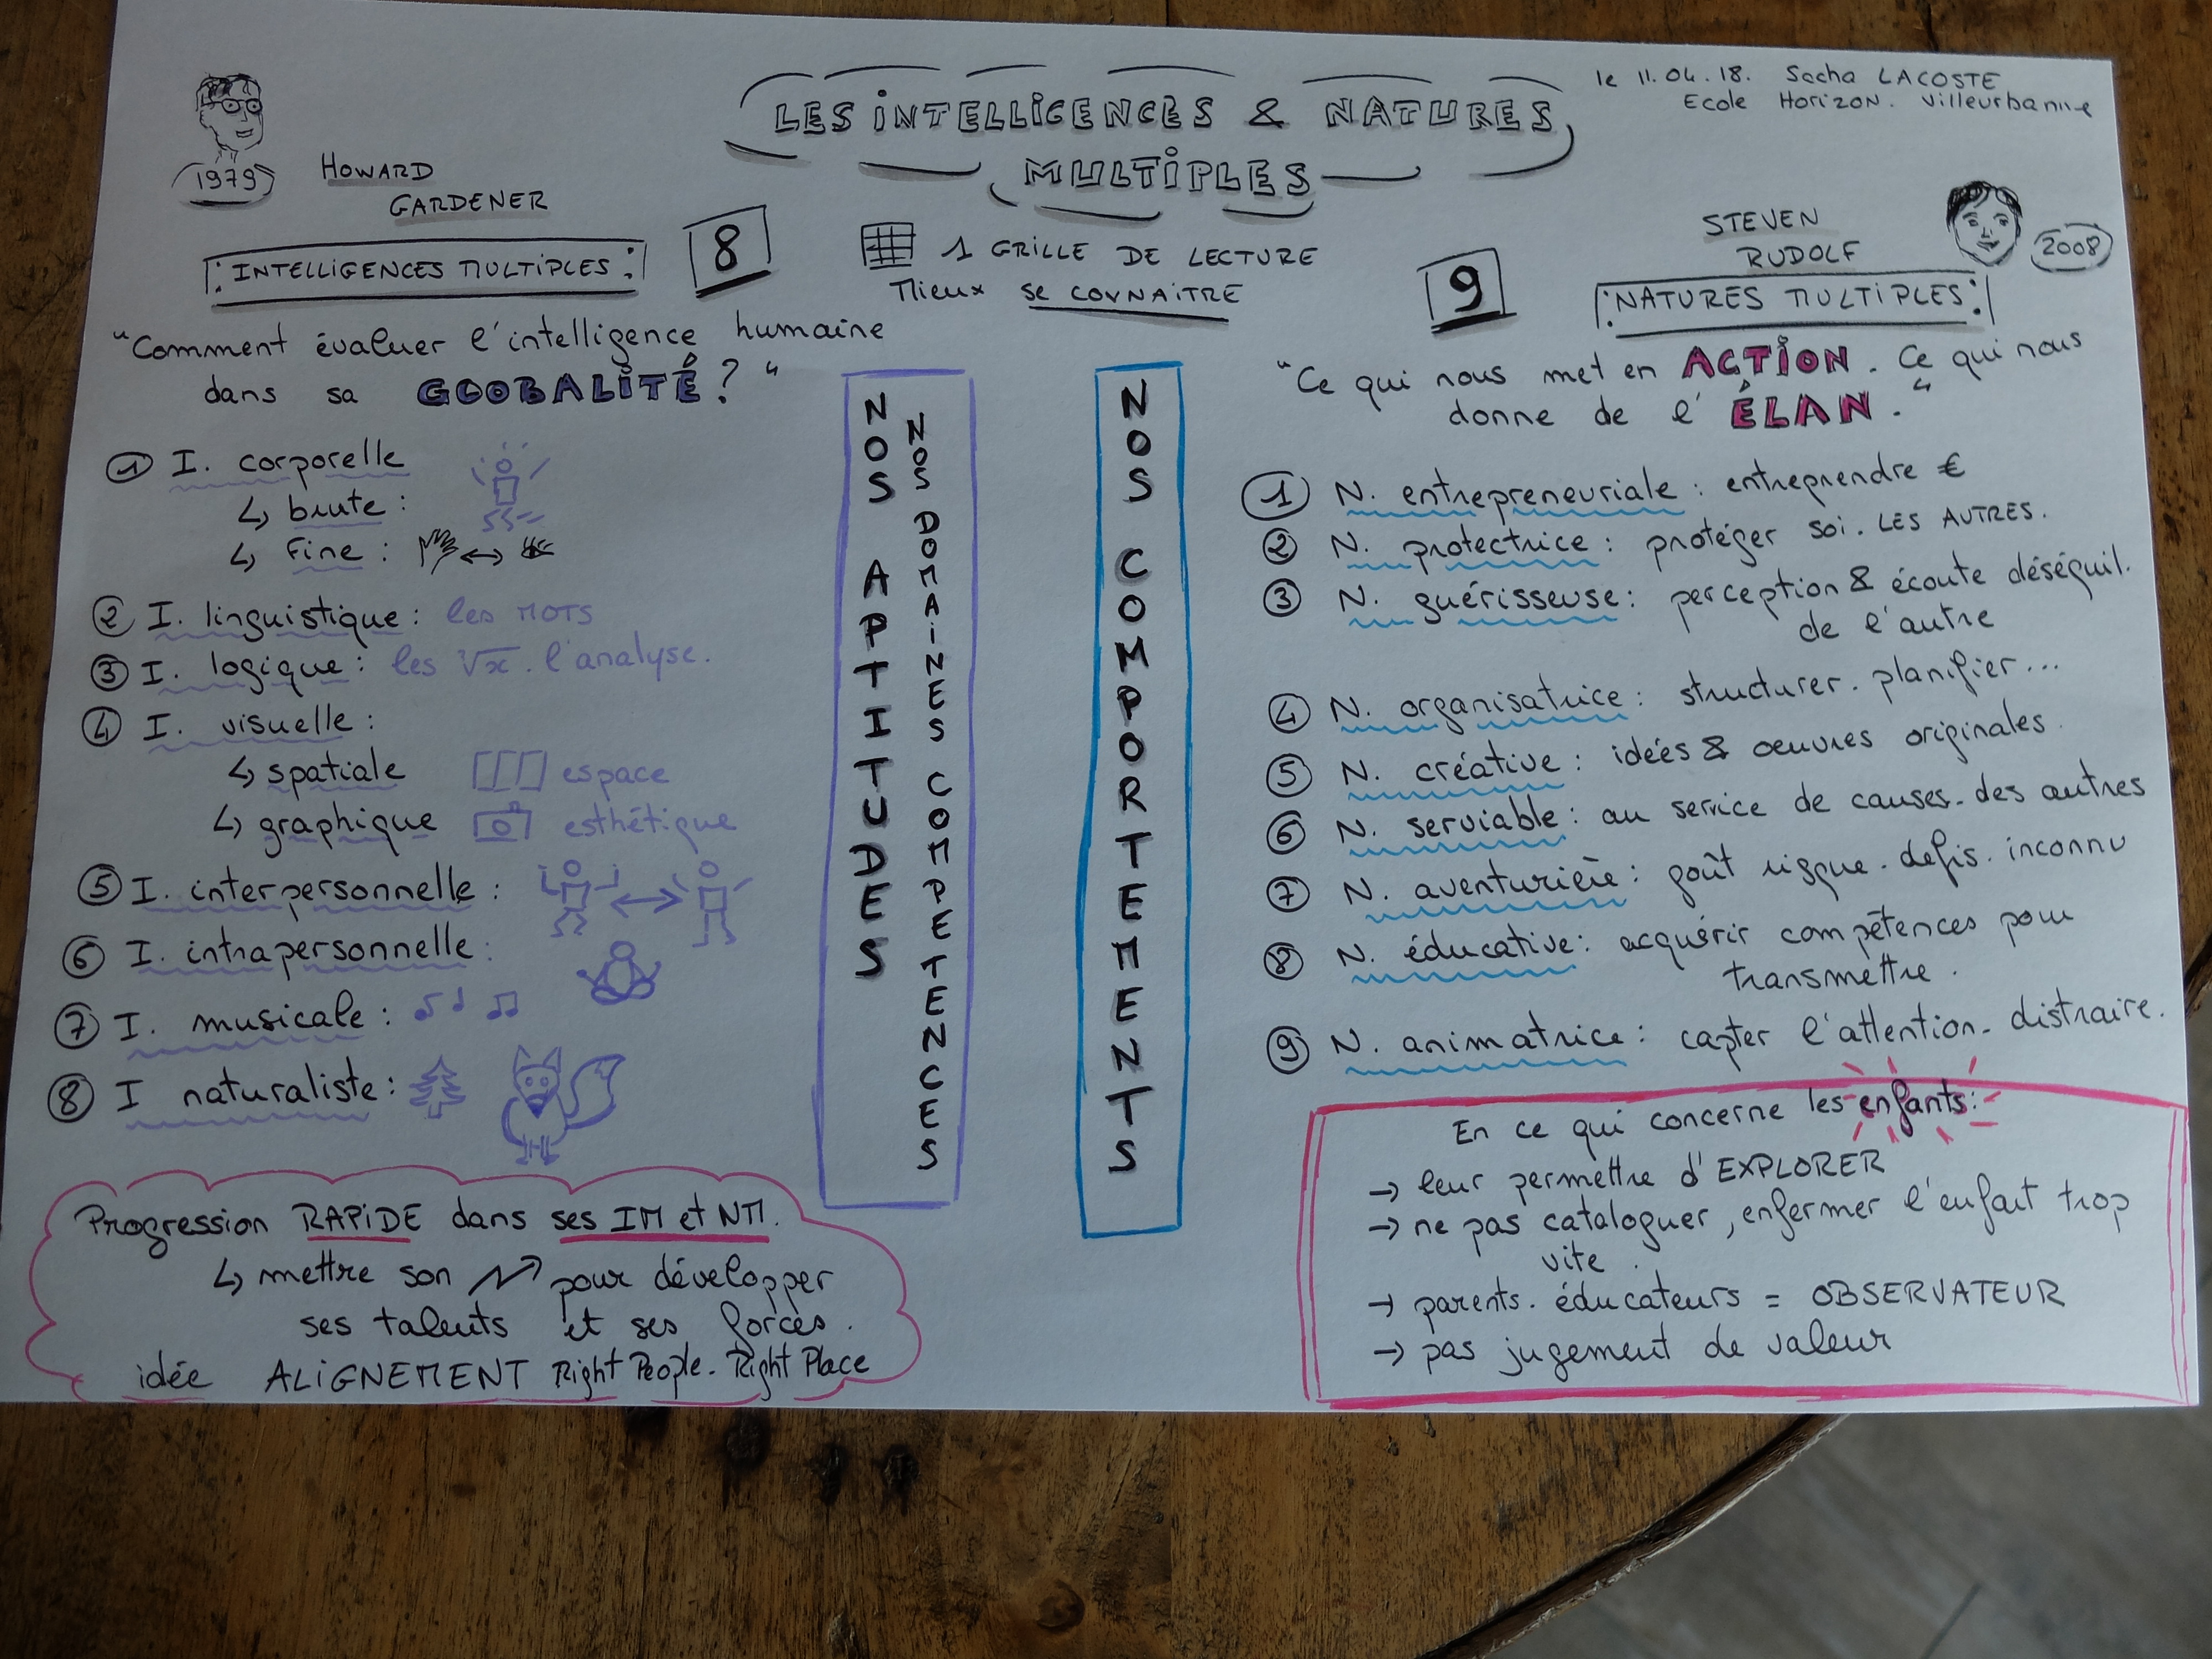 LES INTELLIGENCES & NATURES
MULTIPLES
le 11.04.18. Sacha LACOSTE
Ecole Horizon. Villeurbanne
1979
HOWARD
GARDENER
INTELLIGENCES MULTIPLES
8
1 GRILLE DE LECTURE
Mieux se CONNAITRE
9
STEVEN
RUDOLF
2008
NATURES MULTIPLES
"Comment évaluer l'intelligence humaine
dans sa GLOBALITÉ ? "
① I. corporelle
↳ brute :
↳ Fine : ↔
② I. linguistique : les MOTS
③ I. logique : les ∛x . l'analyse.
④ I. visuelle :
↳ spatiale espace
↳ graphique esthétique
⑤ I. interpersonnelle : ↔
⑥ I. intrapersonnelle :
⑦ I. musicale : ♪ ♩ ♫
⑧ I naturaliste :
Progression RAPIDE dans ses IM et NM.
↳ mettre son pour développer
ses talents et ses forces.
idée ALIGNEMENT Right People. Right Place
NOS APTITUDES
NOS DOMAINES COMPETENCES
NOS COMPORTEMENTS
"Ce qui nous met en ACTION. Ce qui nous
donne de l' ÉLAN."
① N. entrepreneuriale : entreprendre €
② N. protectrice : protéger soi. LES AUTRES.
③ N. guérisseuse : perception & écoute déséquil.
de l'autre
④ N. organisatrice : structurer. planifier...
⑤ N. créative : idées & oeuvres originales.
⑥ N. serviable : au service de causes. des autres
⑦ N. aventurière : goût risque. défis. inconnu
⑧ N. éducative : acquérir compétences pour
transmettre.
⑨ N. animatrice : capter l'attention. distraire.
En ce qui concerne les enfants:
→ leur permettre d'EXPLORER
→ ne pas cataloguer, enfermer l'enfant trop
vite.
→ parents. éducateurs = OBSERVATEUR
→ pas jugement de valeur